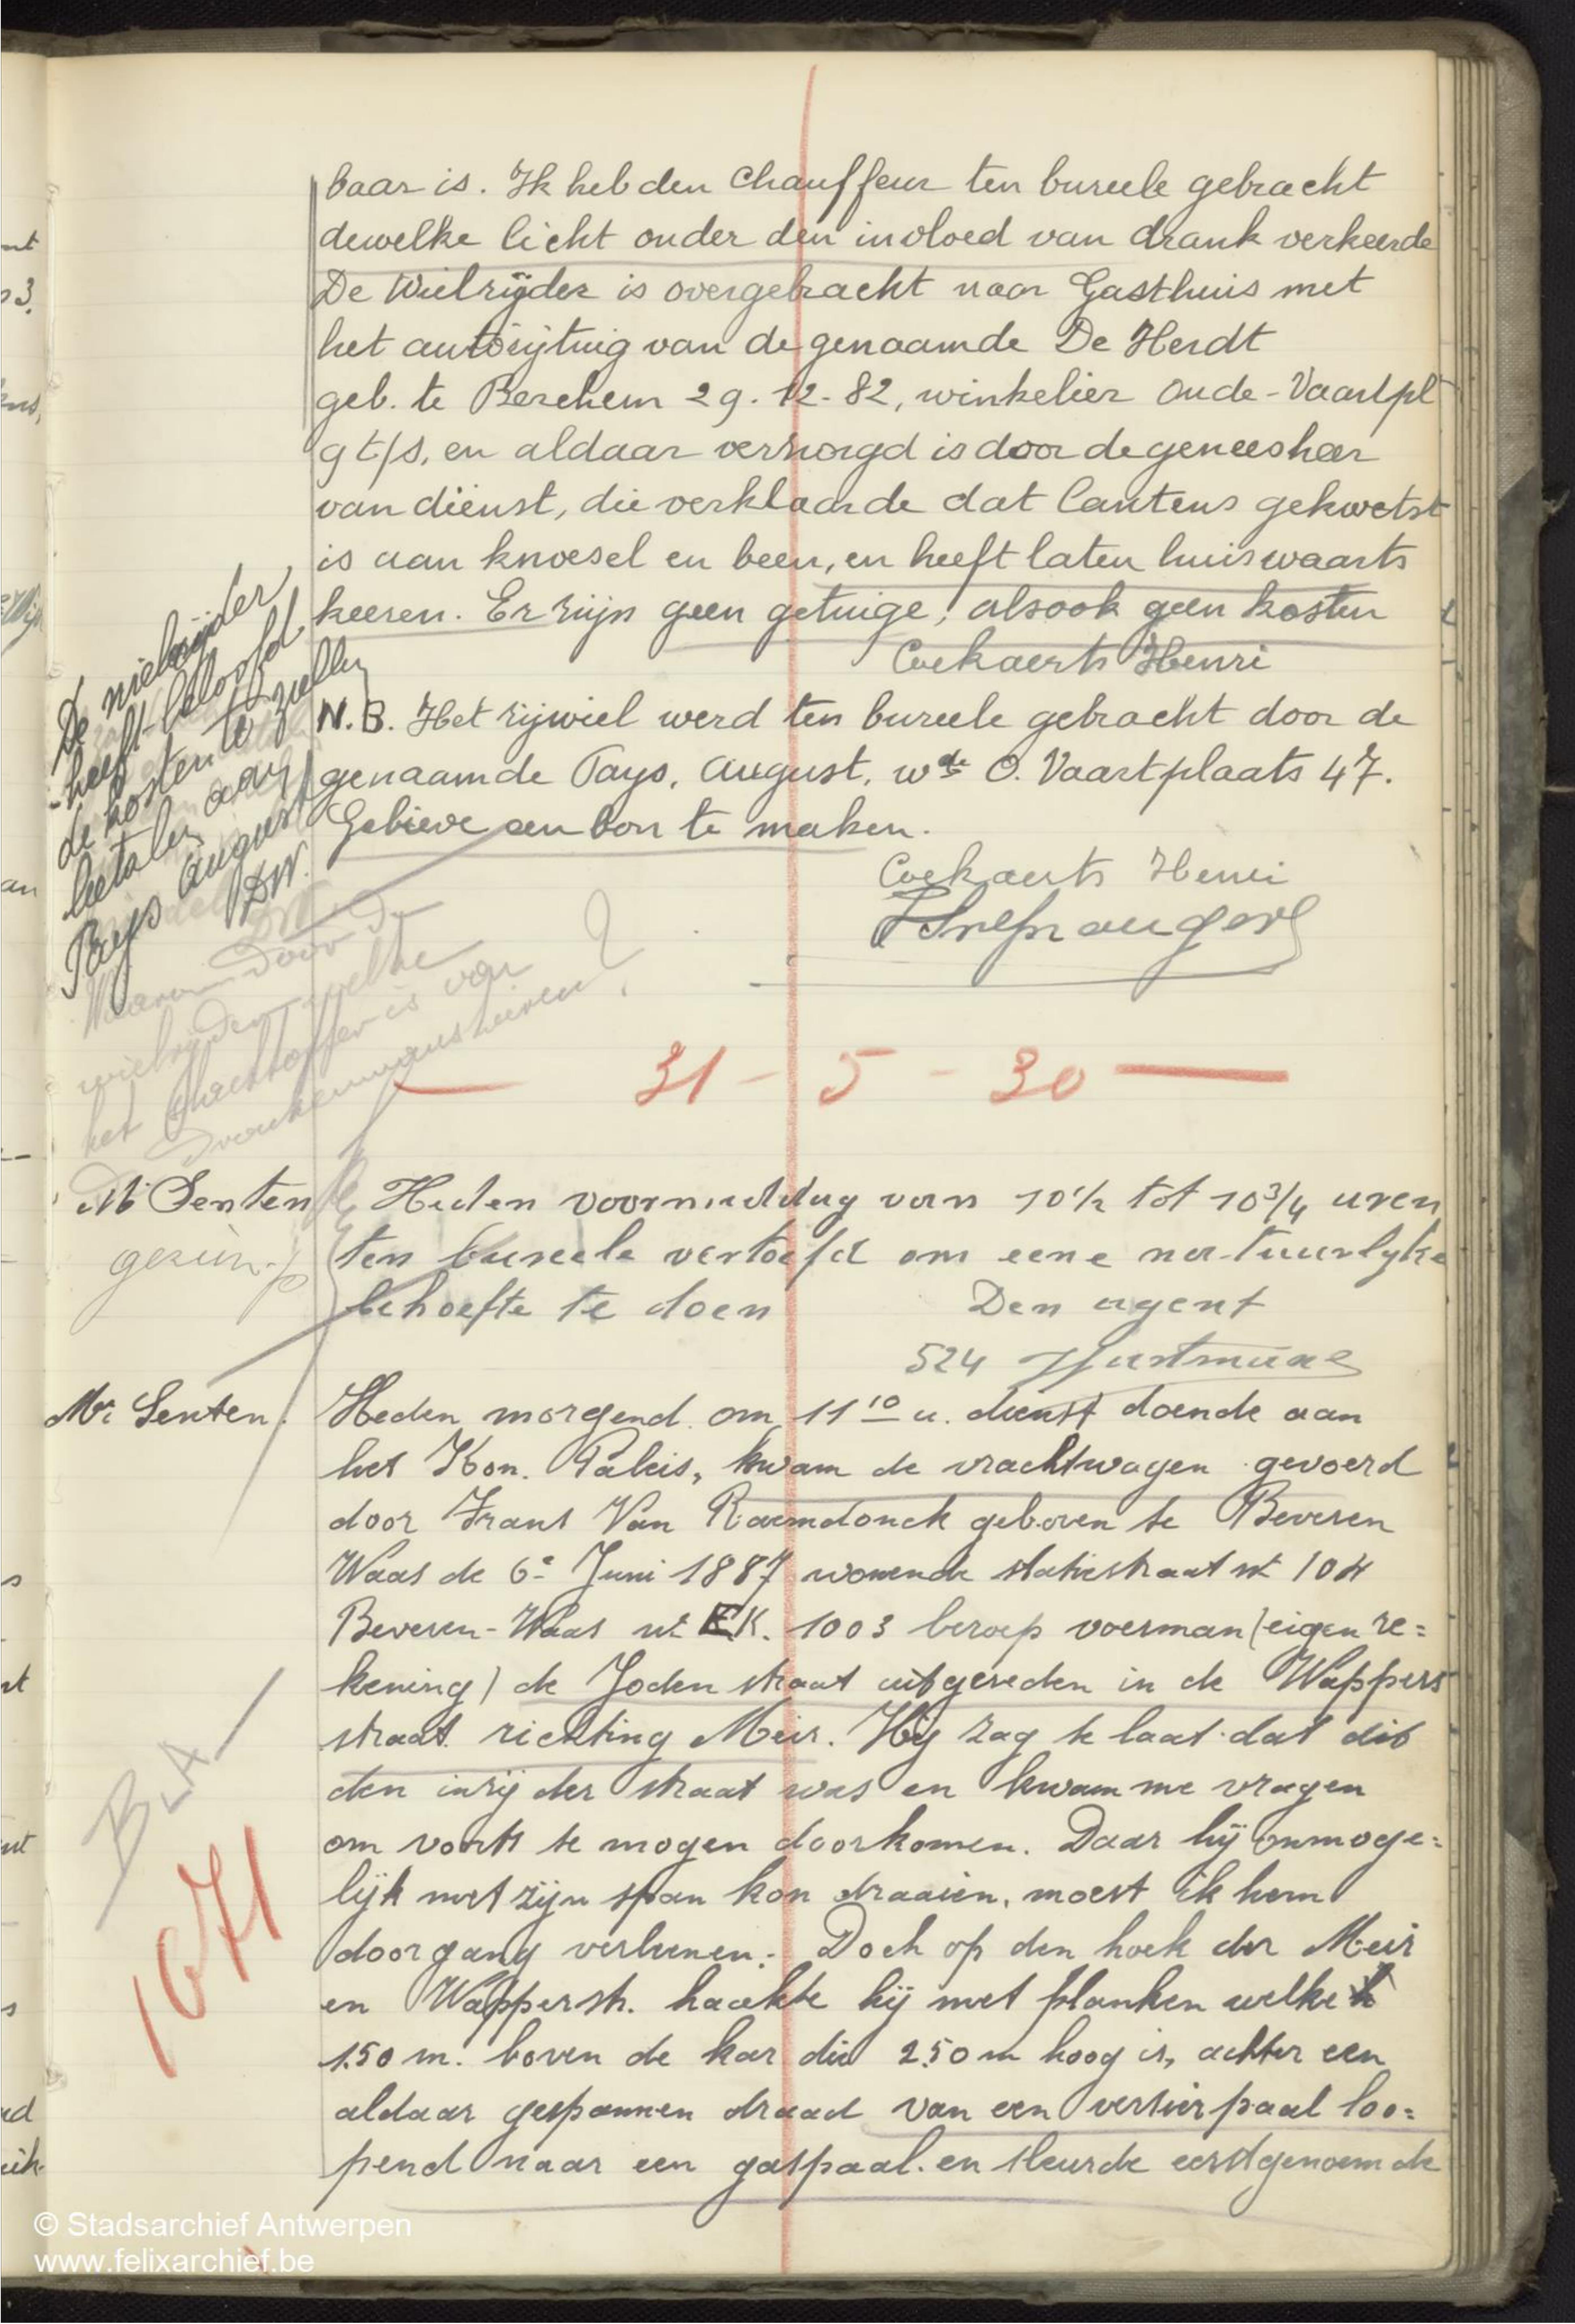 baar is. Ik heb den Chauffeur ten bureele gebracht
dewelke licht onder den invloed van drank verkeerde
De Wielrijder is overgebracht naar Gasthuis met
het autorijtuig van de genaamde De Herdt
geb. te Berchem 29-12-82, winkelier Oude-Vaartpl
9 t/s, en aldaar verzorgd is door de geneesheer
van dienst, die verklaarde dat Cautens gekwetst
is aan knoesel en been, en heeft laten huiswaarts
keeren. Er zijn geen getuige, alsook geen kosten
Coekaerts Henri
De wielrijder
heeft beloofd
de kosten te zullen
betalen aan
Pays August
DW.
N.B. Het rijwiel werd ten bureele gebracht door de
genaamde Pays, August, wde O. Vaartplaats 47.
Gelieve een bon te maken.
Coekaerts Henri
Waarom door de
wielrijder welke
het slachtoffer is van
?
31 - 5 - 30
Mr Senten
gezien
Heden voormiddag van 10 1/2 tot 10 3/4 uren
ten bureele vertoefd om eene natuurlyke
behoefte te doen
Den agent
524
Mr Senten.
Heden morgend om 11 10 u. dienst doende aan
het Kon. Paleis, kwam de vrachtwagen gevoerd
door Frans Van Raemdonck geboren te Beveren
Waas de 6e Juni 1887 wonende statiestraat nr 104
Beveren-Waas nr E.K. 1003 beroep voerman (eigen re=
kening) de Joden straat uitgereden in de Wappers
straat richting Meir. Hij zag te laat dat dit
den inrij der straat was en kwam me vragen
om voorts te mogen doorkomen. Daar hij onmoge=
lijk met zijn span kon draaien, moest ik hem
doorgang verleenen. Doch op den hoek der Meir
en Wappersstr. haakte hij met planken welke
1.50 m. boven de kar die 2.50 m hoog is, achter een
aldaar gespannen draad van een versierpaal loo=
pend naar een gaspaal. en sleurde eerstgenoemde
BLA
1671
© Stadsarchief Antwerpen
www.felixarchief.be